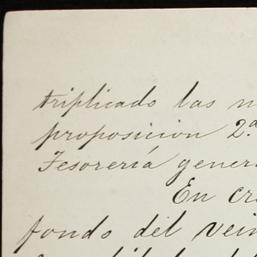 triplicado las
proposicion 2ª
Tesorería gener
En cr
fondo del vein